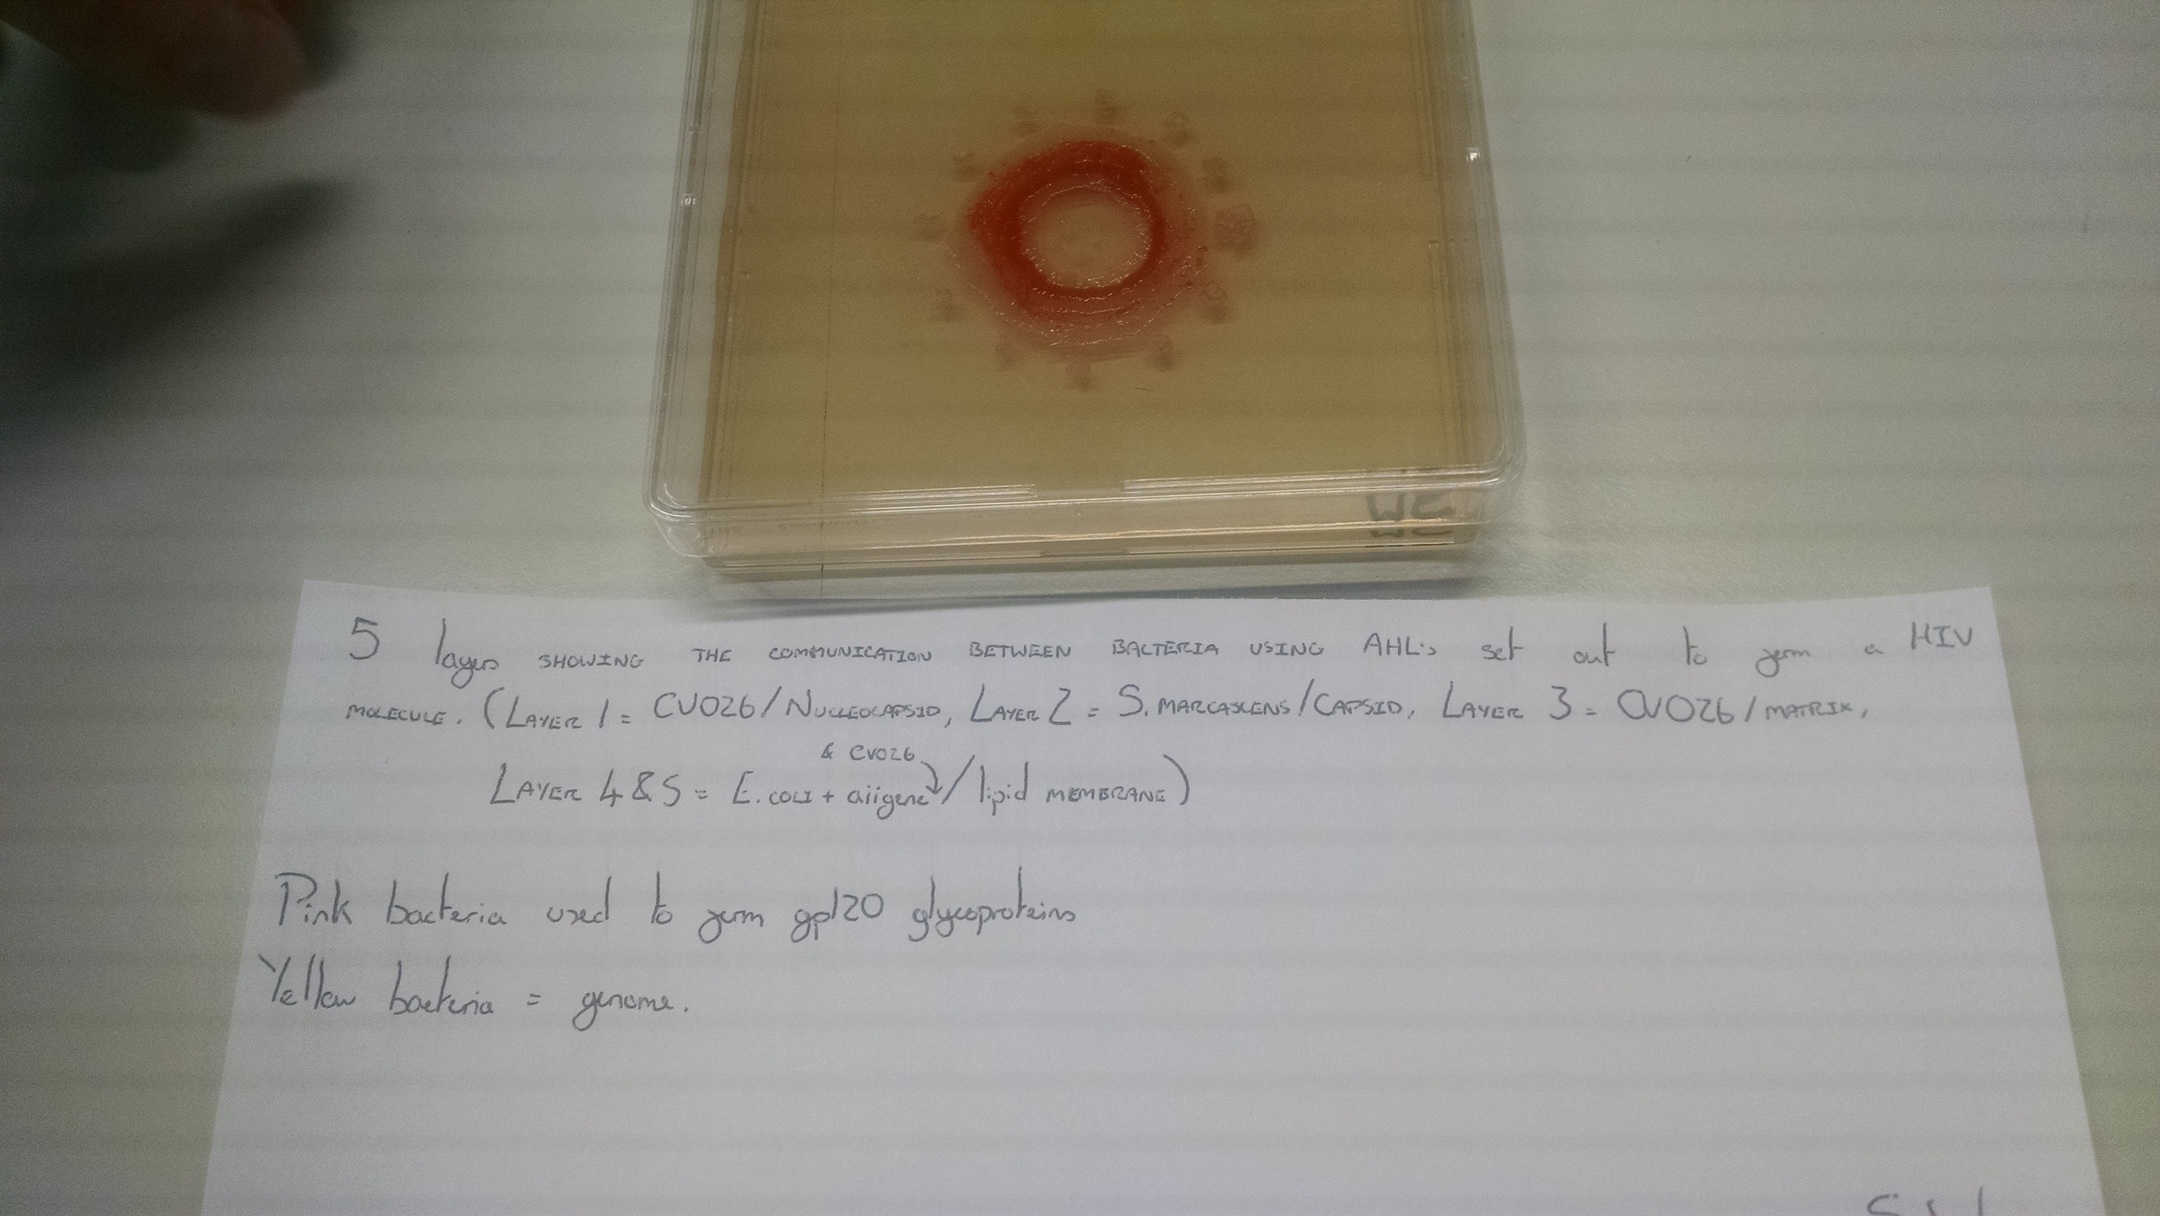 5 layers SHOWING THE COMMUNICATION BETWEEN BACTERIA USING AHL's set out to form a HIV
MOLECULE. (LAYER 1 = CVO26/NUCLEOCAPSID, LAYER 2 = S. MARCASCENS/CAPSID, LAYER 3 = CVO26/MATRIX,
& CVO26
LAYER 4 & 5 = E. COLI + aiigene / lipid MEMBRANE)
Pink bacteria used to form gp120 glycoproteins
Yellow bacteria = genome.